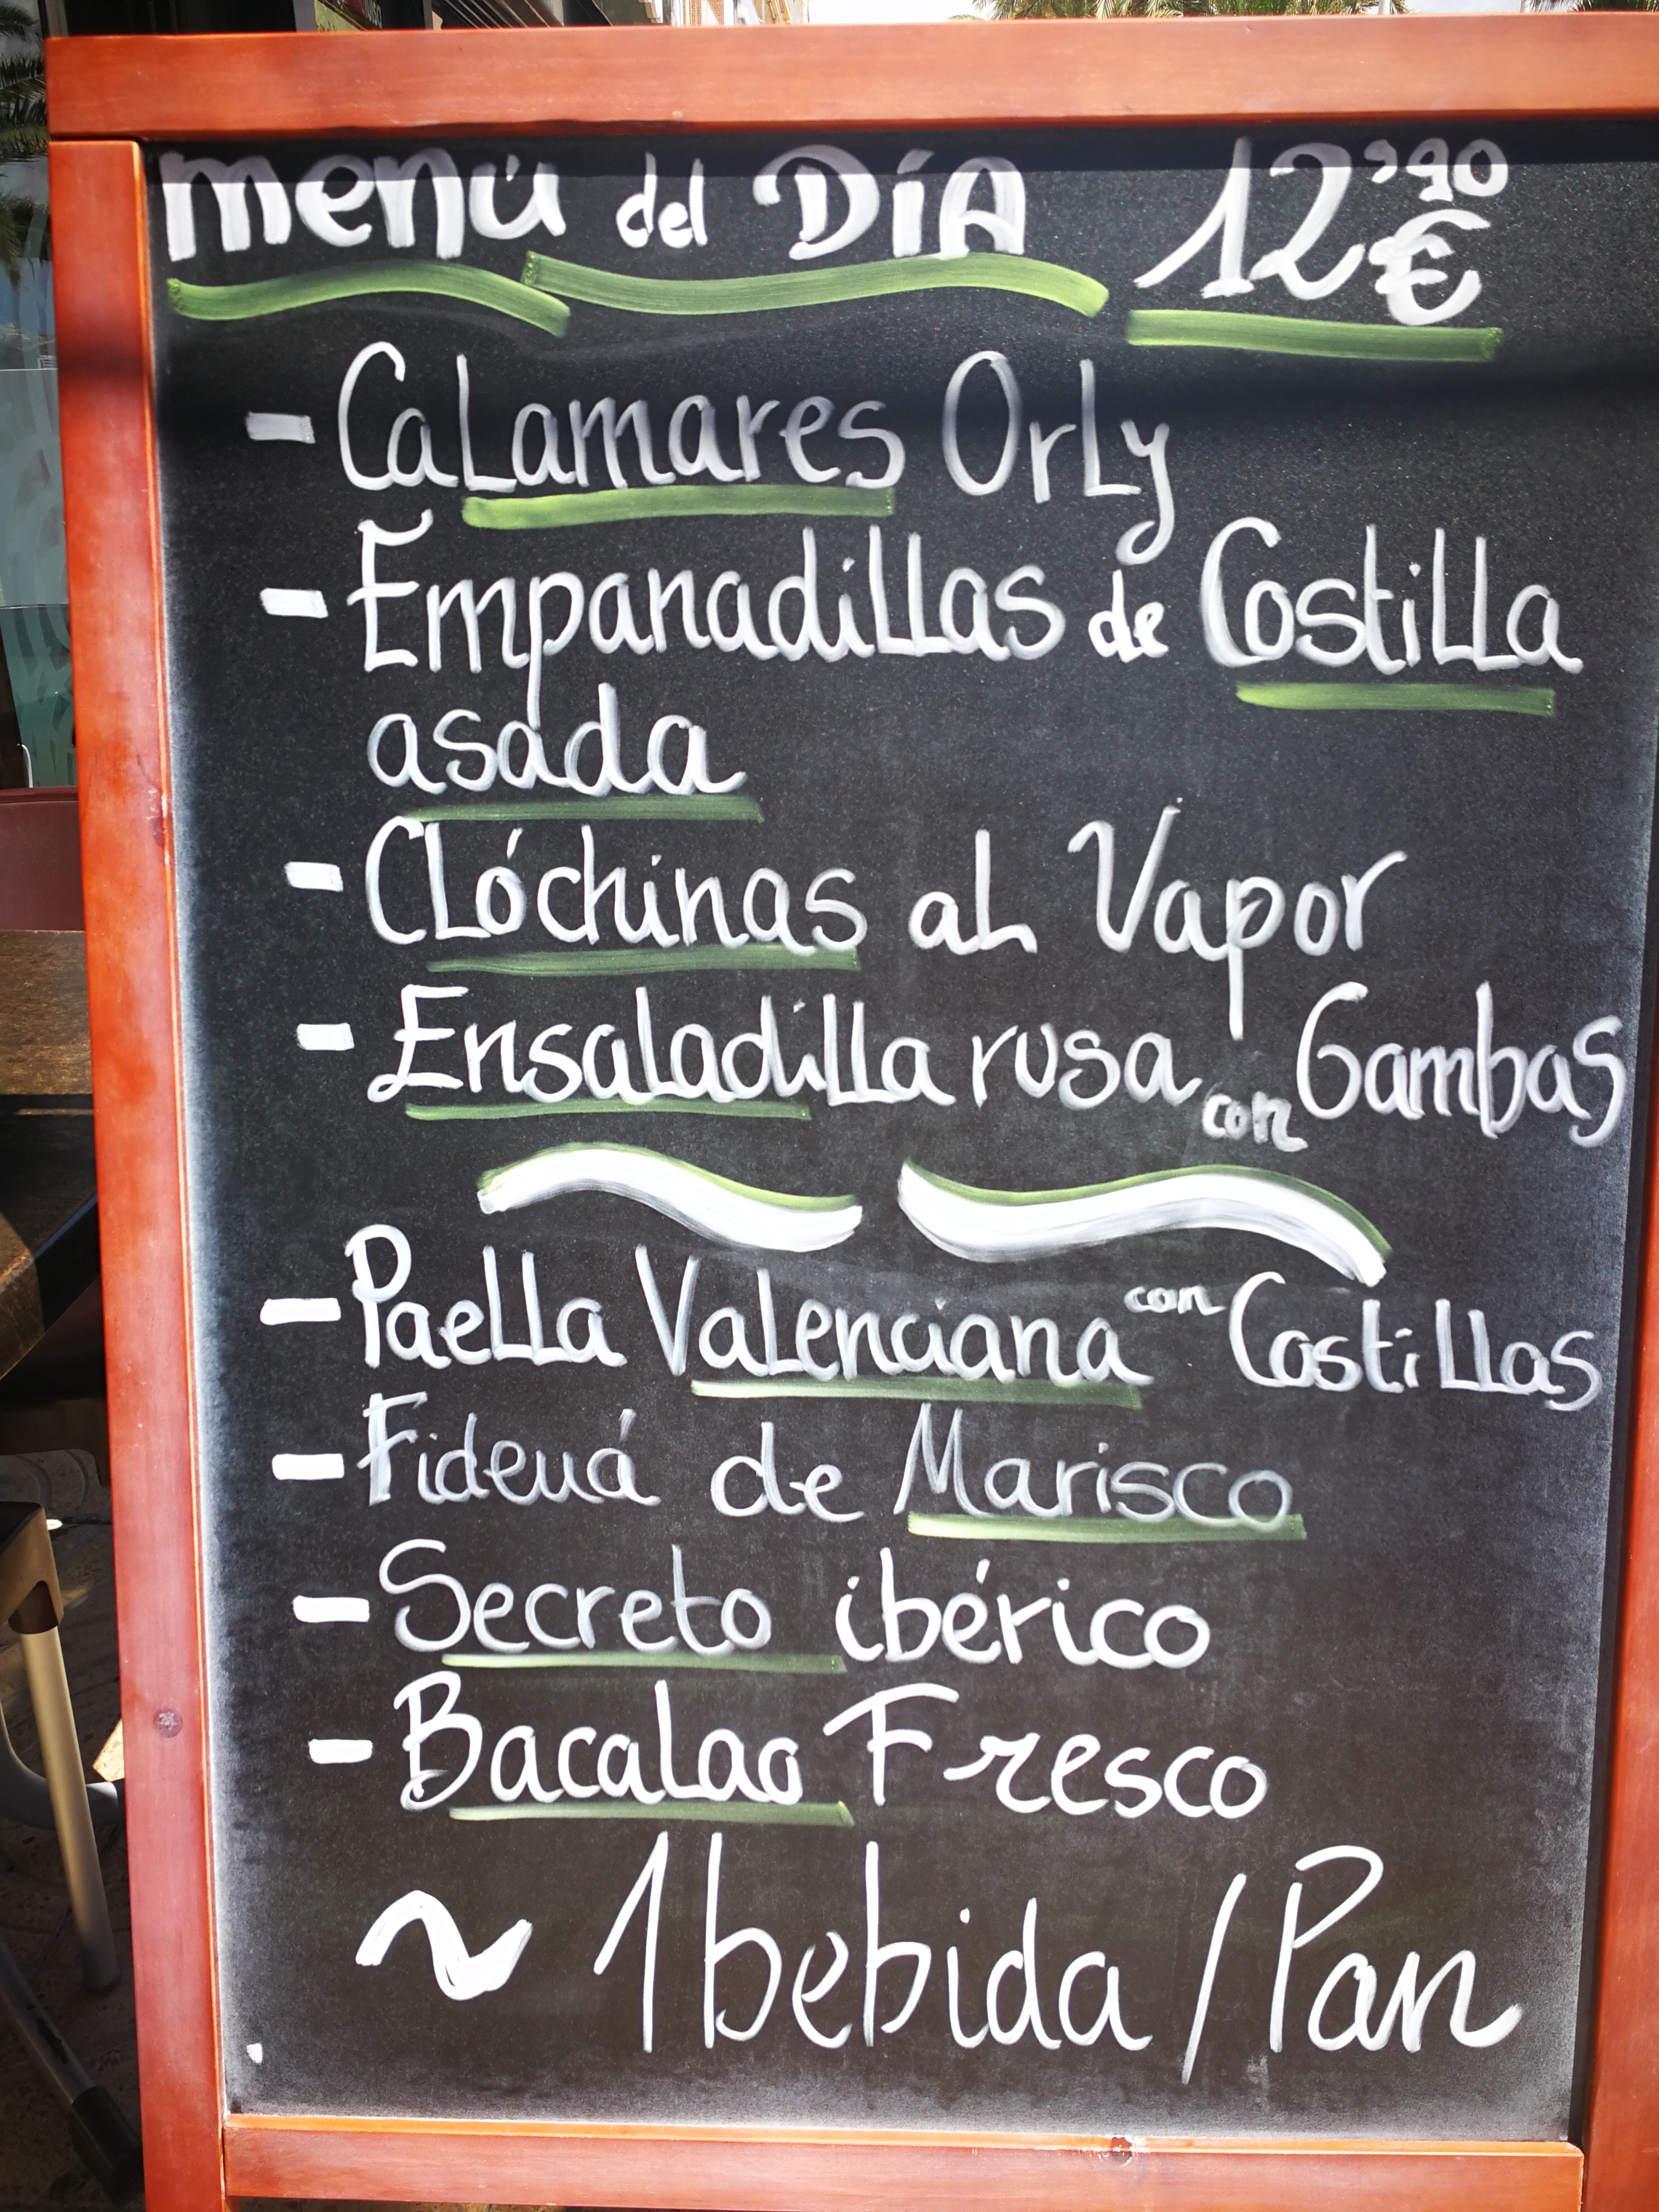 menú del DíA 12'90 €
- Calamares Orly
- Empanadillas de Costilla
asada
- Clóchinas al Vapor
- Ensaladilla rusa con Gambas
- Paella Valenciana con Costillas
- Fideuá de Marisco
- Secreto ibérico
- Bacalao Fresco
~ 1 bebida / Pan